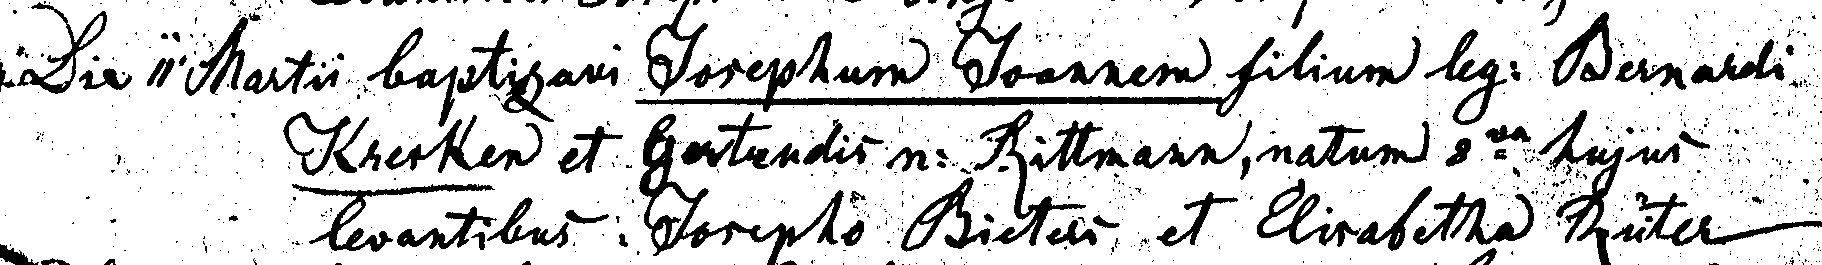 Die 11 Martii baptizavi Josephum Joannem filium leg: Bernardi
Kresken et Gertrudis n: Rittmann, natum 8va hujus
levantibus: Josepho Bieters et Elisabetha Rüter